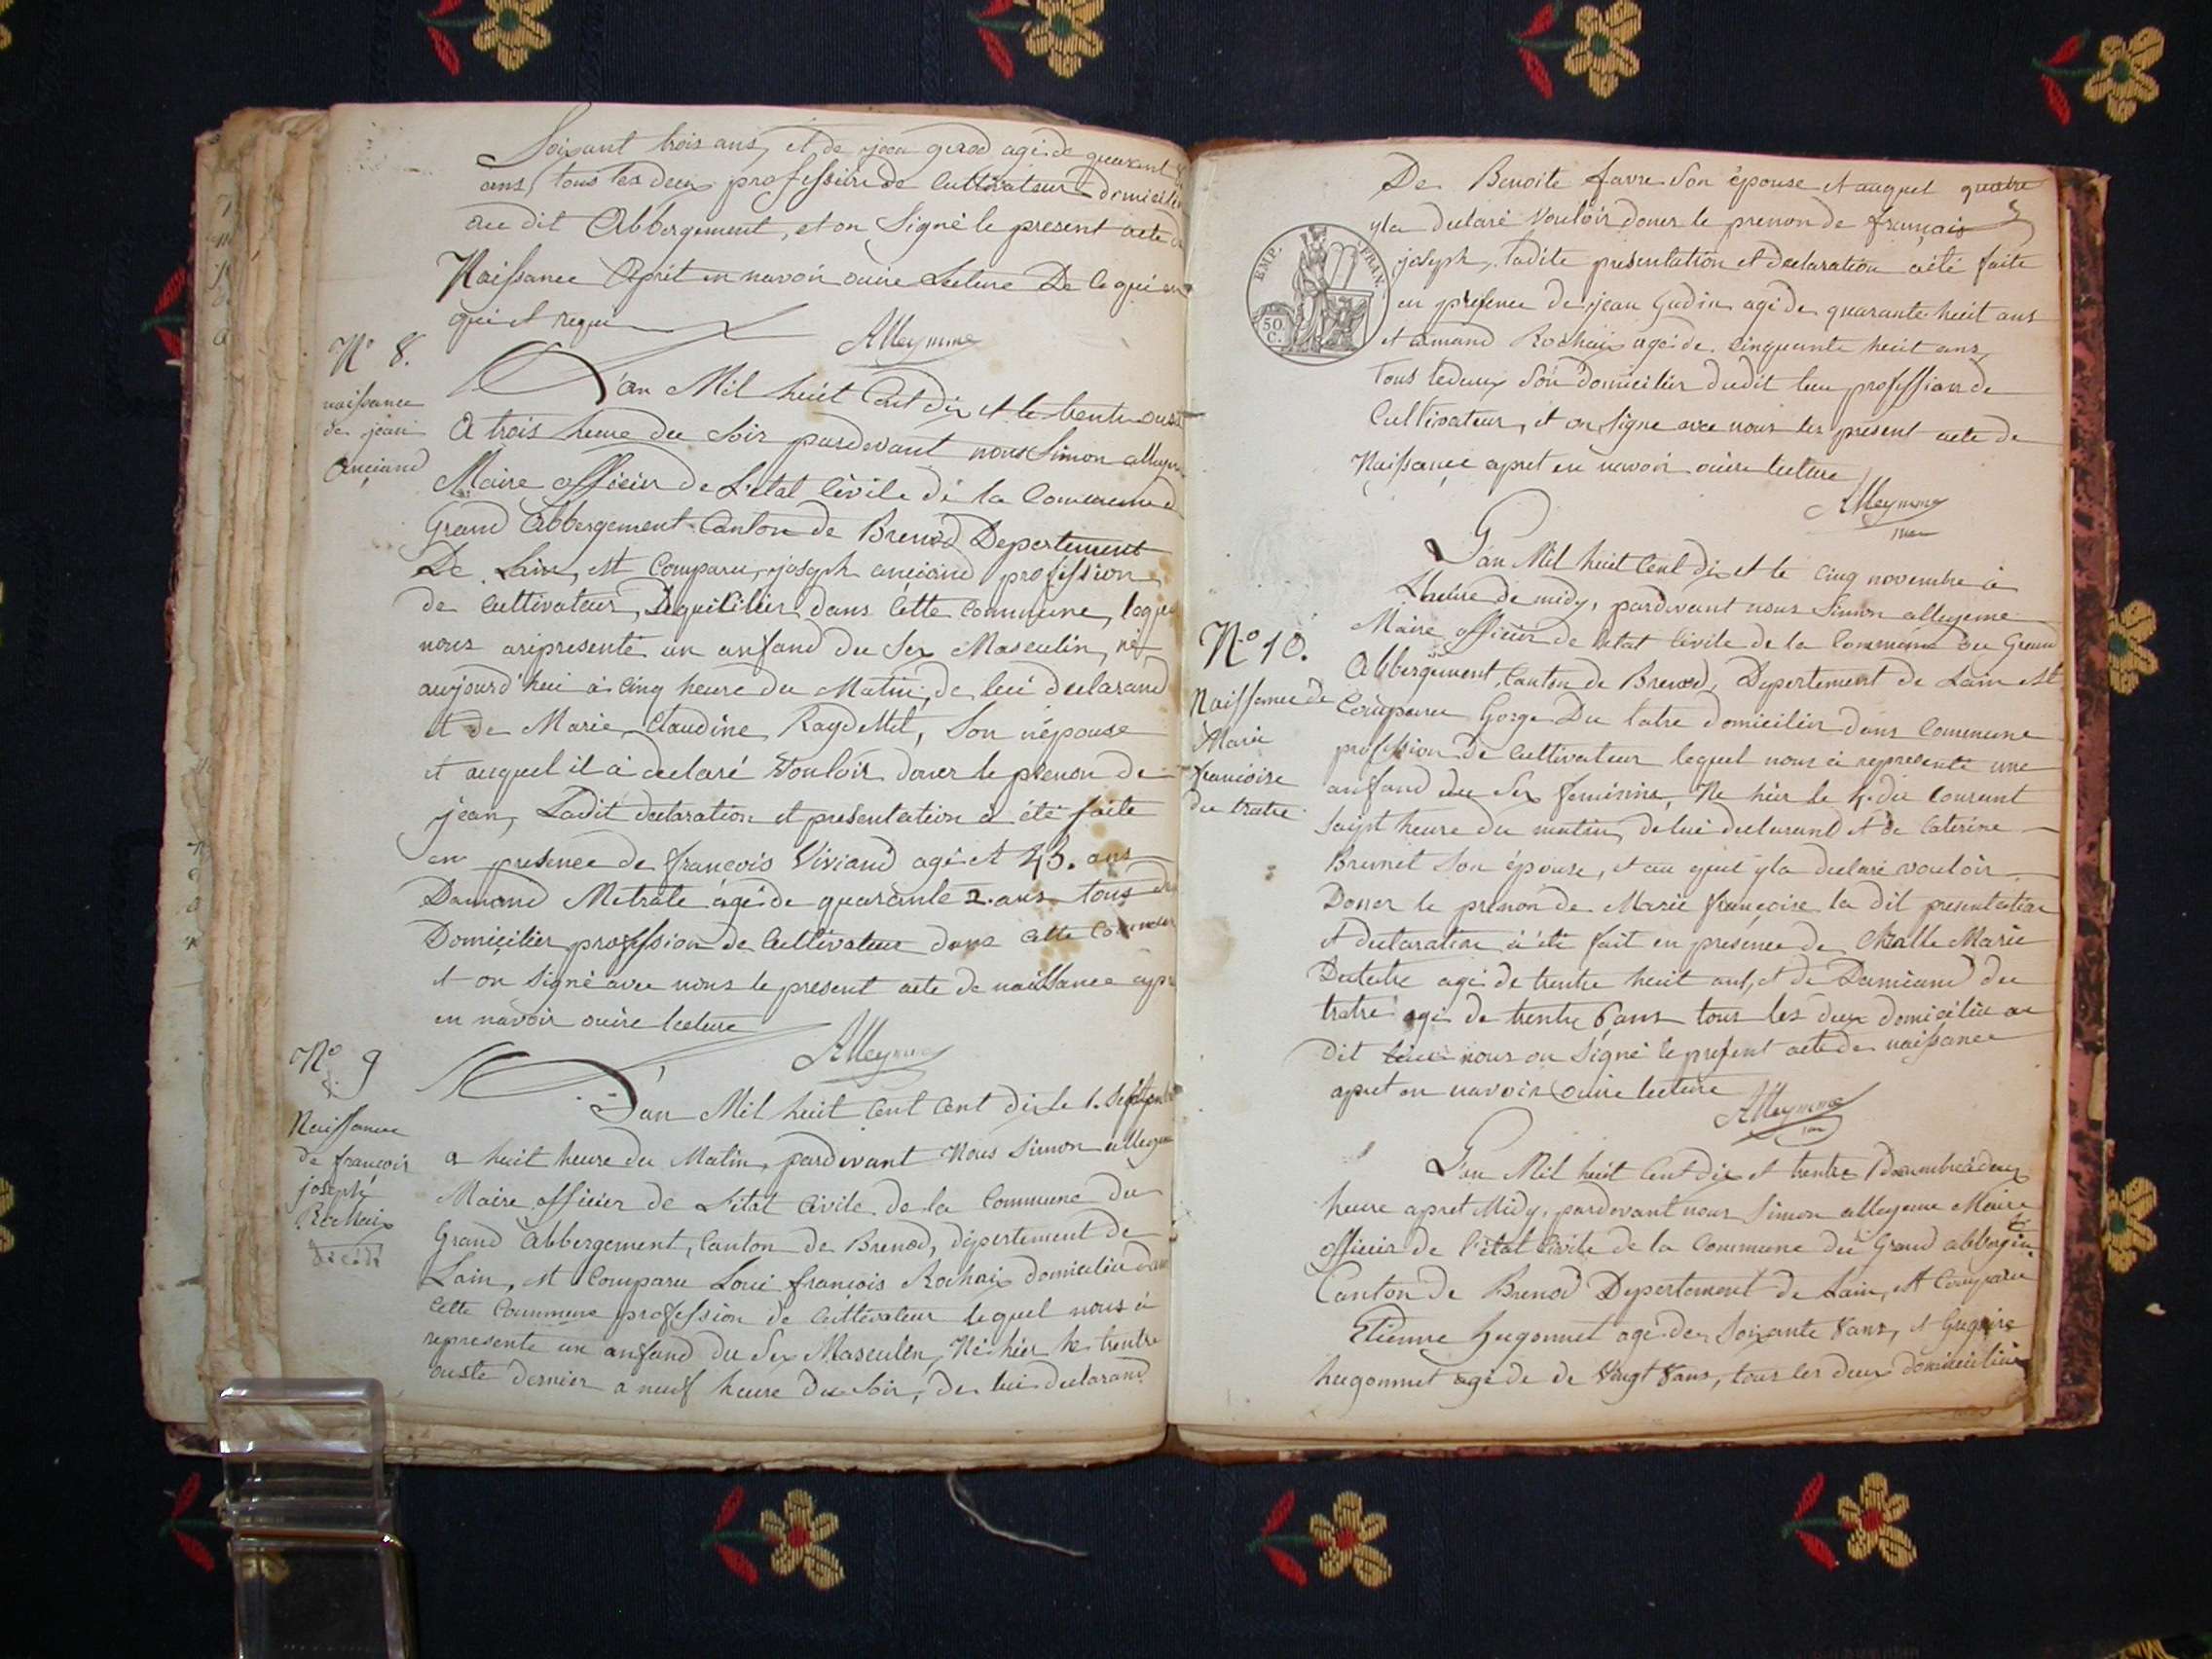 Soixant trois ans, et de jean gerod agé de quarant
ans, tous les deux profession de Cultivateur domicilié
au dit Abbergement, et on Signé le present acte de
Naissance Aprêt en navoir ouire Lecture De ce qui
qui et requi
Alleyme
N° 8.
naissance
de jean
Anciand
L'an Mil huit Cent dix et le trente
A trois heure du soir pardevant nous Simon alleyme
Maire officier De L'état Civile de la Commune
Grand Abbergement Canton de Brenod Departement
De Lain, est Comparu, joseph anciand profession
de Cultivateur, Domicilier dans Cette Commune, lequel
nous a representé un anfand du Sex Masculin, né
aujourd'hui à Cinq heure du Matin, de lui declarand
et de Marie Claudine, Son népouse
et auquel il a declaré Vouloir doner le prenon de
jean, Ladit declaration et presentation a été faite
en presence de francois Viviand agé et 45. ans
Damand Metrale agé de quarante 2. ans tous
Domicilier profession de Cultivateur dans Cette Commune
et on Signé avec nous le present acte de naissance apr
en navoir ouire lecture
Alleyme
N° 9
Naissance
de francois
joseph
Rochaix
décédé
L'an Mil huit Cent Cent dix le 1. Septembre
a huit heure du Matin, pardevant Nous Simon alleyme
Maire officier de L'état Civile de la Commune du
Grand Abbergement, Canton de Brenod, département de
Lain, est Comparu Loui francois Rochaix domicilié dans
Cette Commune profession de Cultivateur lequel nous à
representé un anfand du Sex Masculin, Né hier le trentre
ouste dernier a neuf heure du Soir, de lui declarand
De Benoite favre Son épouse et auquel
yla declaré Vouloir doner le prenon de français
joseph, ladite presentation et declaration aété faite
en presence de jean Gudin agé de quarante huit ans
et amand Rochaix agé de Cinquante huit ans,
tous ledeux Son domicilier dudit lieu profession de
Cultivateur, et on Signe avec nous les présent acte de
Naissance apret en navoir ouire lecture
Alleyme
EMP. FRAN.
50
C.
L'an Mil huit Cent dix et le Cinq novembre à
Lheure de midy, pardevant nous Simon alleyeme
Maire officier de letat Civile de la Commune du Grand
Abbergement, Canton de Brenod, Departement de Lain est
Comparu Gorge Du tatre domicilier dans Commune
profession de Cultivateur lequel nous à representé une
anfand du Sex feminine, Né hier le 4. du Courant
Saipt heure du matin, de lui declarant et de Caterine
Brunet Son épouse, et au quel yla declaré vouloir
Doner le prenon de Marie françoise la dit presentation
et declaration à été fait en présence de Marie
Dutatre agé de trentre huit ans, et de Damiand du
tratre agé de trentre 6 ans tous les deux domicilié au
dit lieu nous on Signé le present acte de naissance
apret en navoir Ouire lecture
Alleyme
N° 10.
Naissance de
Marie
francoise
du tratre
L'an Mil huit Cent dix et trentre Decembre à deux
heure apret Midy, pardevant nous Simon alleyeme Maire
officier de l'état Civile de la Commune du Grand
Canton de Brenod Departement de Lain, est Comparu
Etienne hugonnet agé de Soixante 8 ans, et Gregoire
hugonnet agé de de Vingt 8 ans, tous les deux domicilier